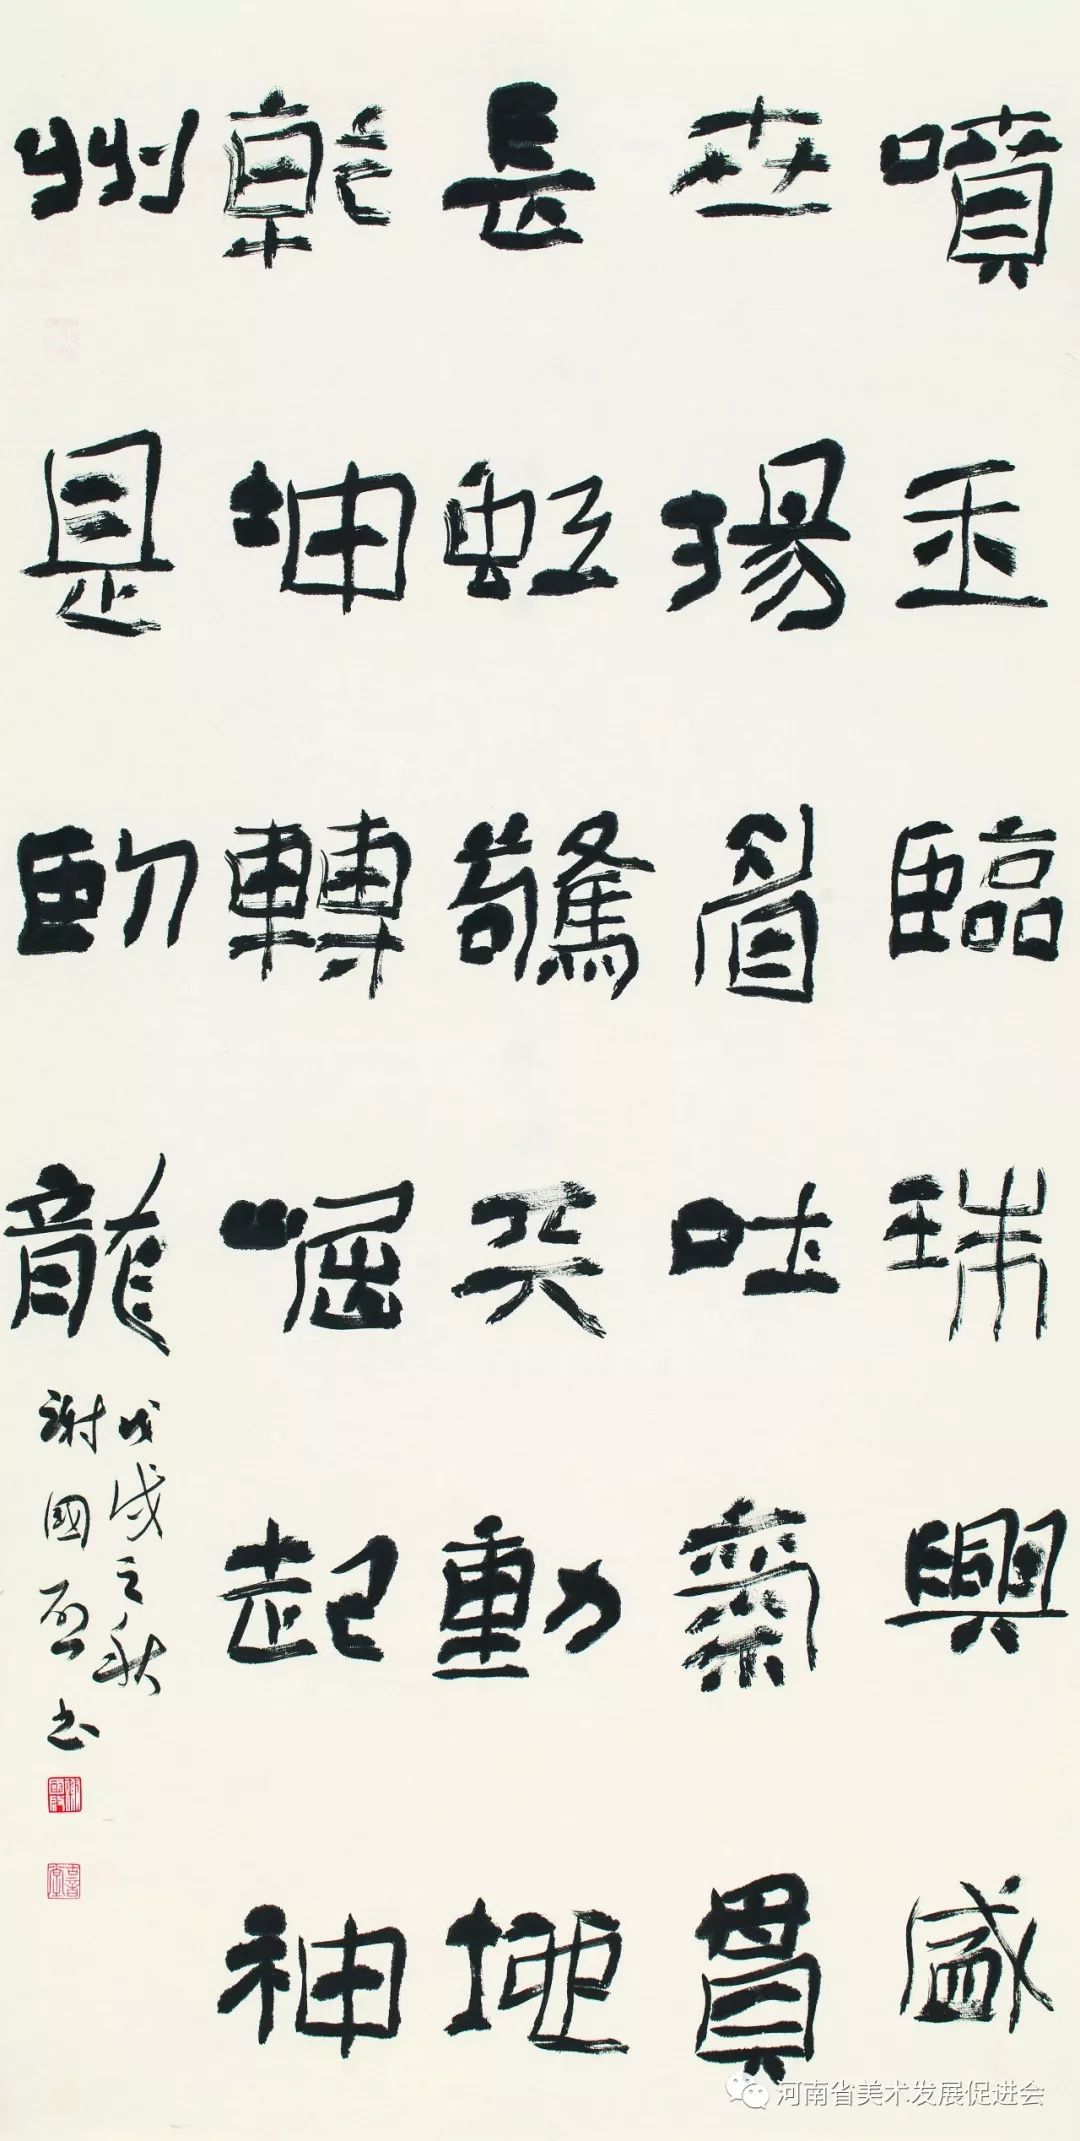 噴玉臨珠興盛
世揚眉吐氣貫
長虹驚天動地
乾坤轉崛起神
州是臥龍
戊戌之秋
謝國啓書
河南省美术发展促进会